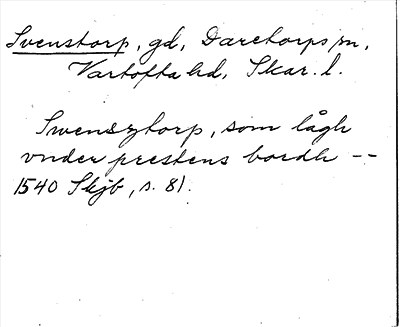 Svenstorp, gd, Daretorps sn,
Vartofta hd, Skar. l.
Swensztorp, som lågh
vnder prestens bordh --
1540 Skjb, s. 81.